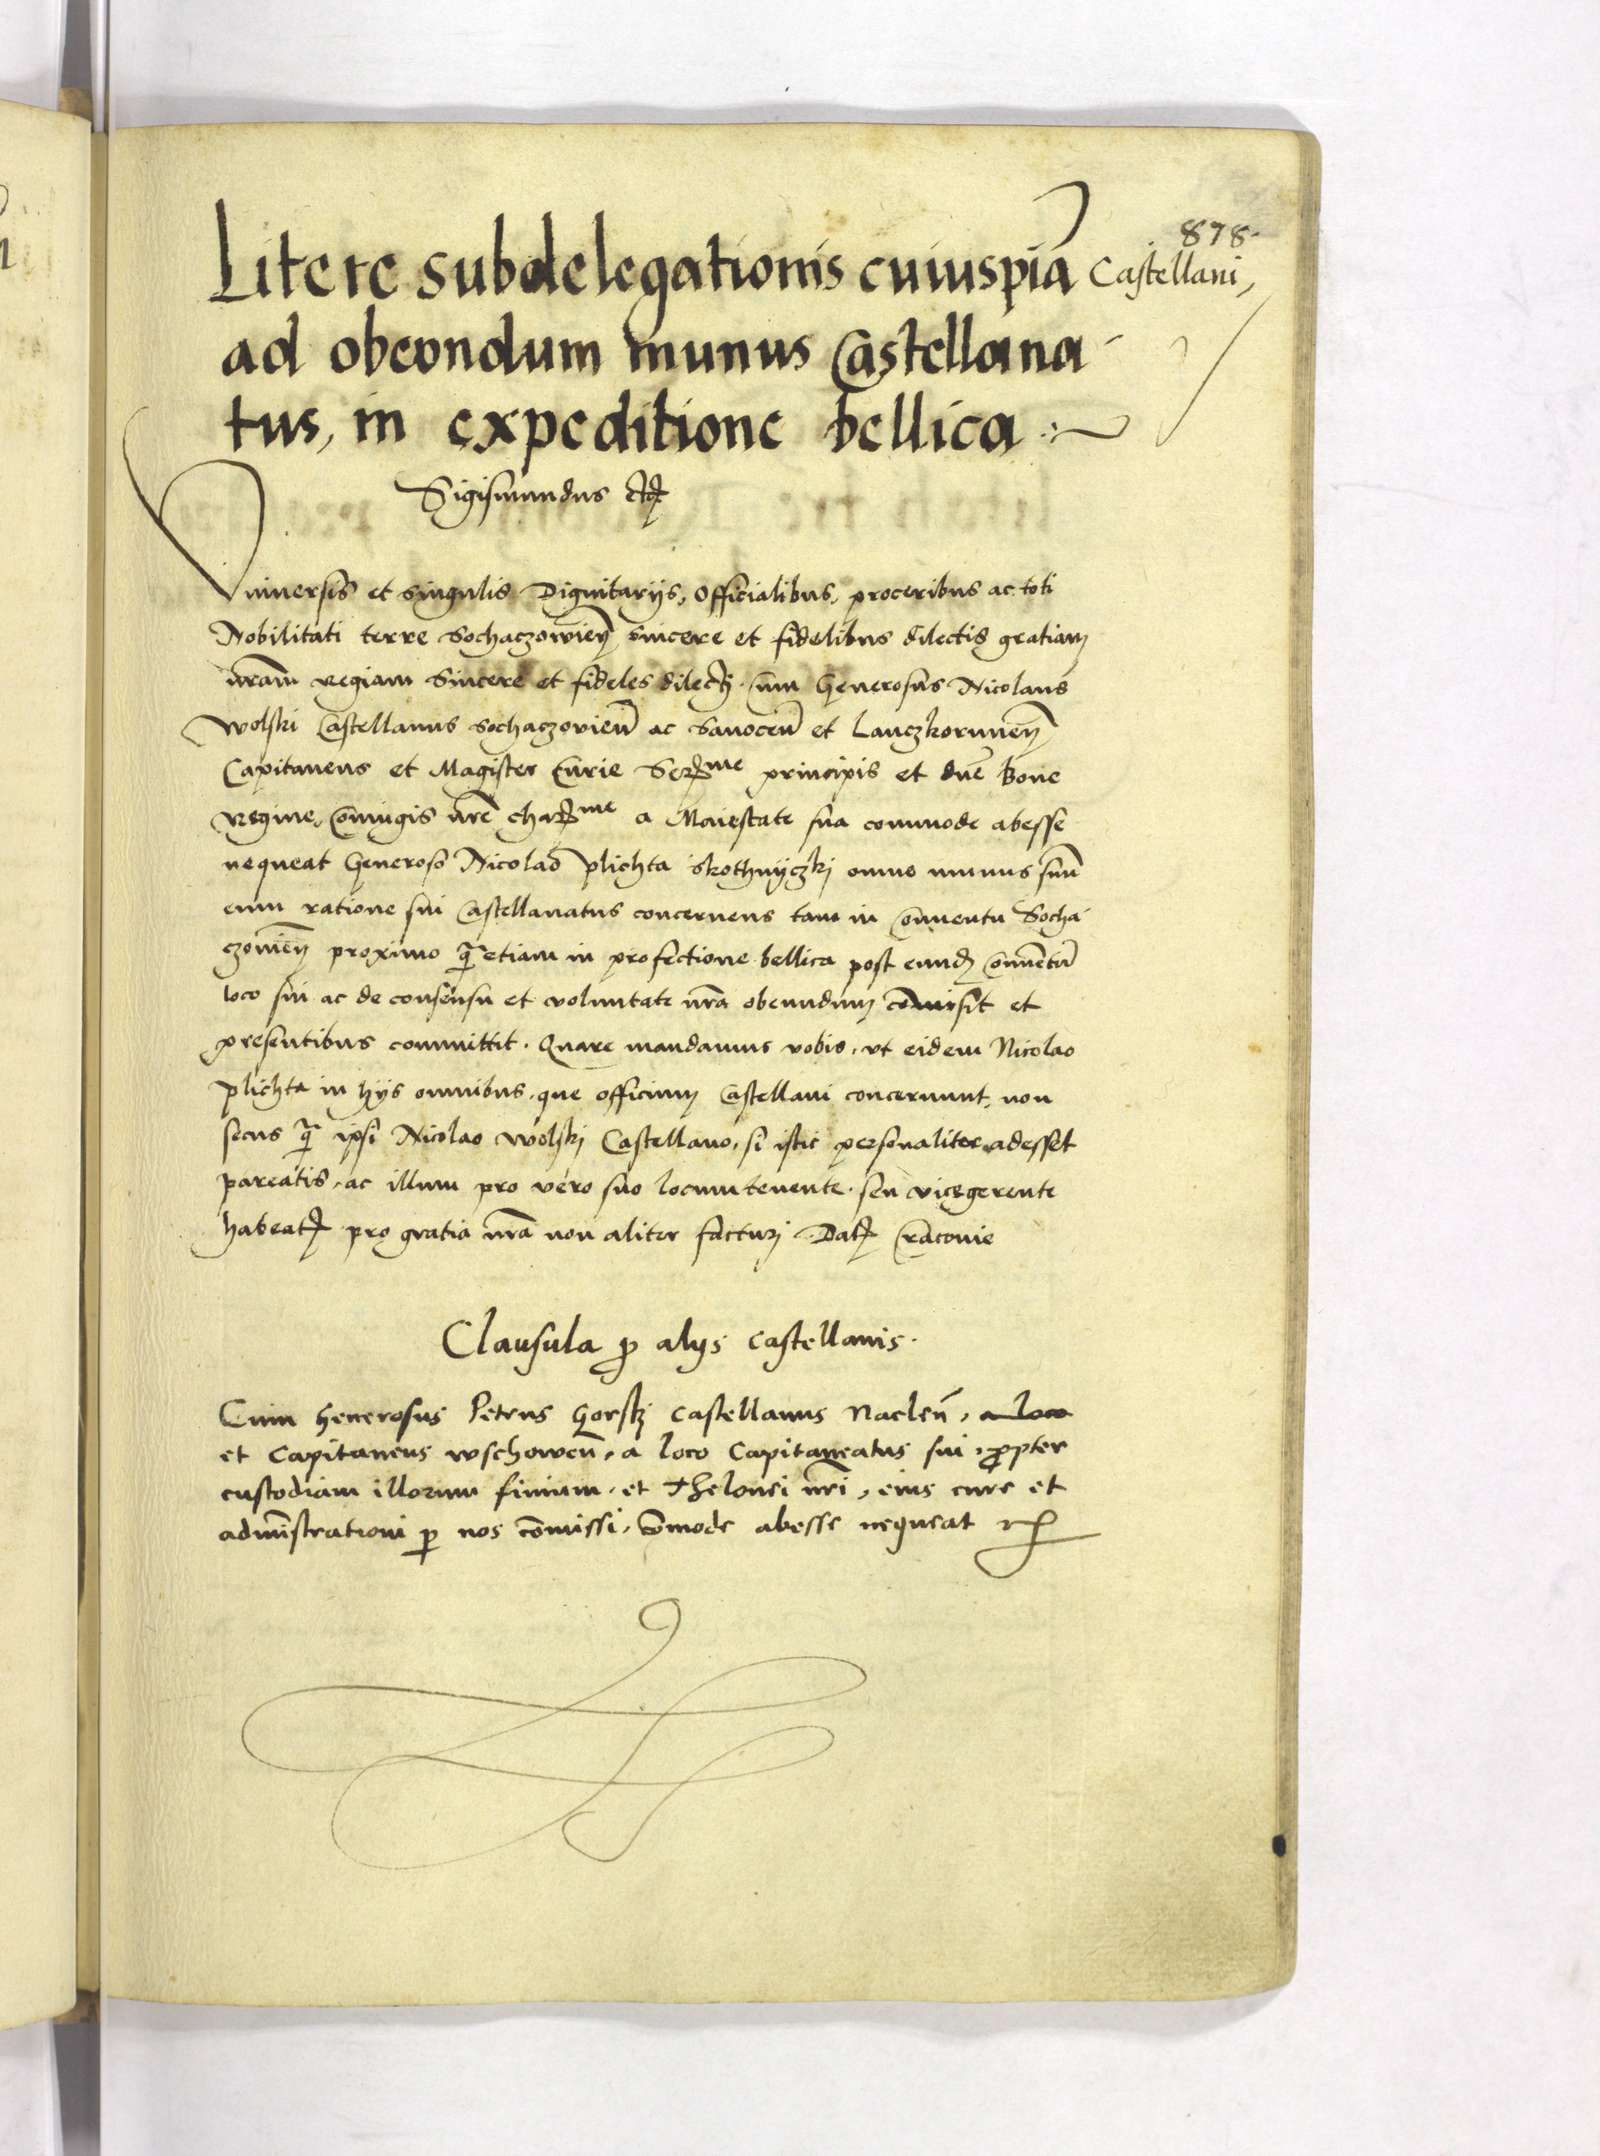 878.
Litere subdelegationis cuiuspiã Castellani,
ad obeondum munus Castellana
tus, in expeditione bellica
Sigismundus etc
Vniuersis et singulis Dignitarijs, Officialibus, proceribus ac toti
Nobilitati terre Sochaczowień sincere et fidelibus dilectis gratiam
nrãm regiam Sincere et fideles dilecti. Cum Generosus Nicolaus
Wolski Castellanus Sochaczovień ac Sanoceñ et Lanczkoruneñ
Capitaneus et Magister Curie Serme principis et dnẽ Bone
Regine, Coniugis nrẽ charme a Maiestate sua commode abesse
nequeat Generoso Nicolao Plichta Skothnyczkj omne munus suũ
eum ratione sui Castellanatus concernens tam in Conuentu Socha
czovień proximo q̃ etiam in profectione bellica post eund Conuẽtũ
loco sui ac de consensu et voluntate nrã obeundum cõmisit et
presentibus committit. Quare mandamus vobis, vt eidem Nicolao
Plichta in hijs omnibus, que officium Castellani concernunt, non
secus q̃ ipsi Nicolao Wolskj Castellano, si istic personaliter adesset
pareatis, ac illum pro vero suo locumtenente seu vicegerente
habeatis pro gratia nrã non aliter facturi. Dat Cracovie
Clausula p alijs castellanis.
Cum Generosus Petrus Gorskj castellanus Nacleñ, a loco
et Capitaneus wschoweñ, a loco Capitaneatus sui, ppter
custodiam illorum finium, et Thelonei nrĩ, eius cure et
admĩstrationi p nos cõmissi, cõmode abesse nequeat etc